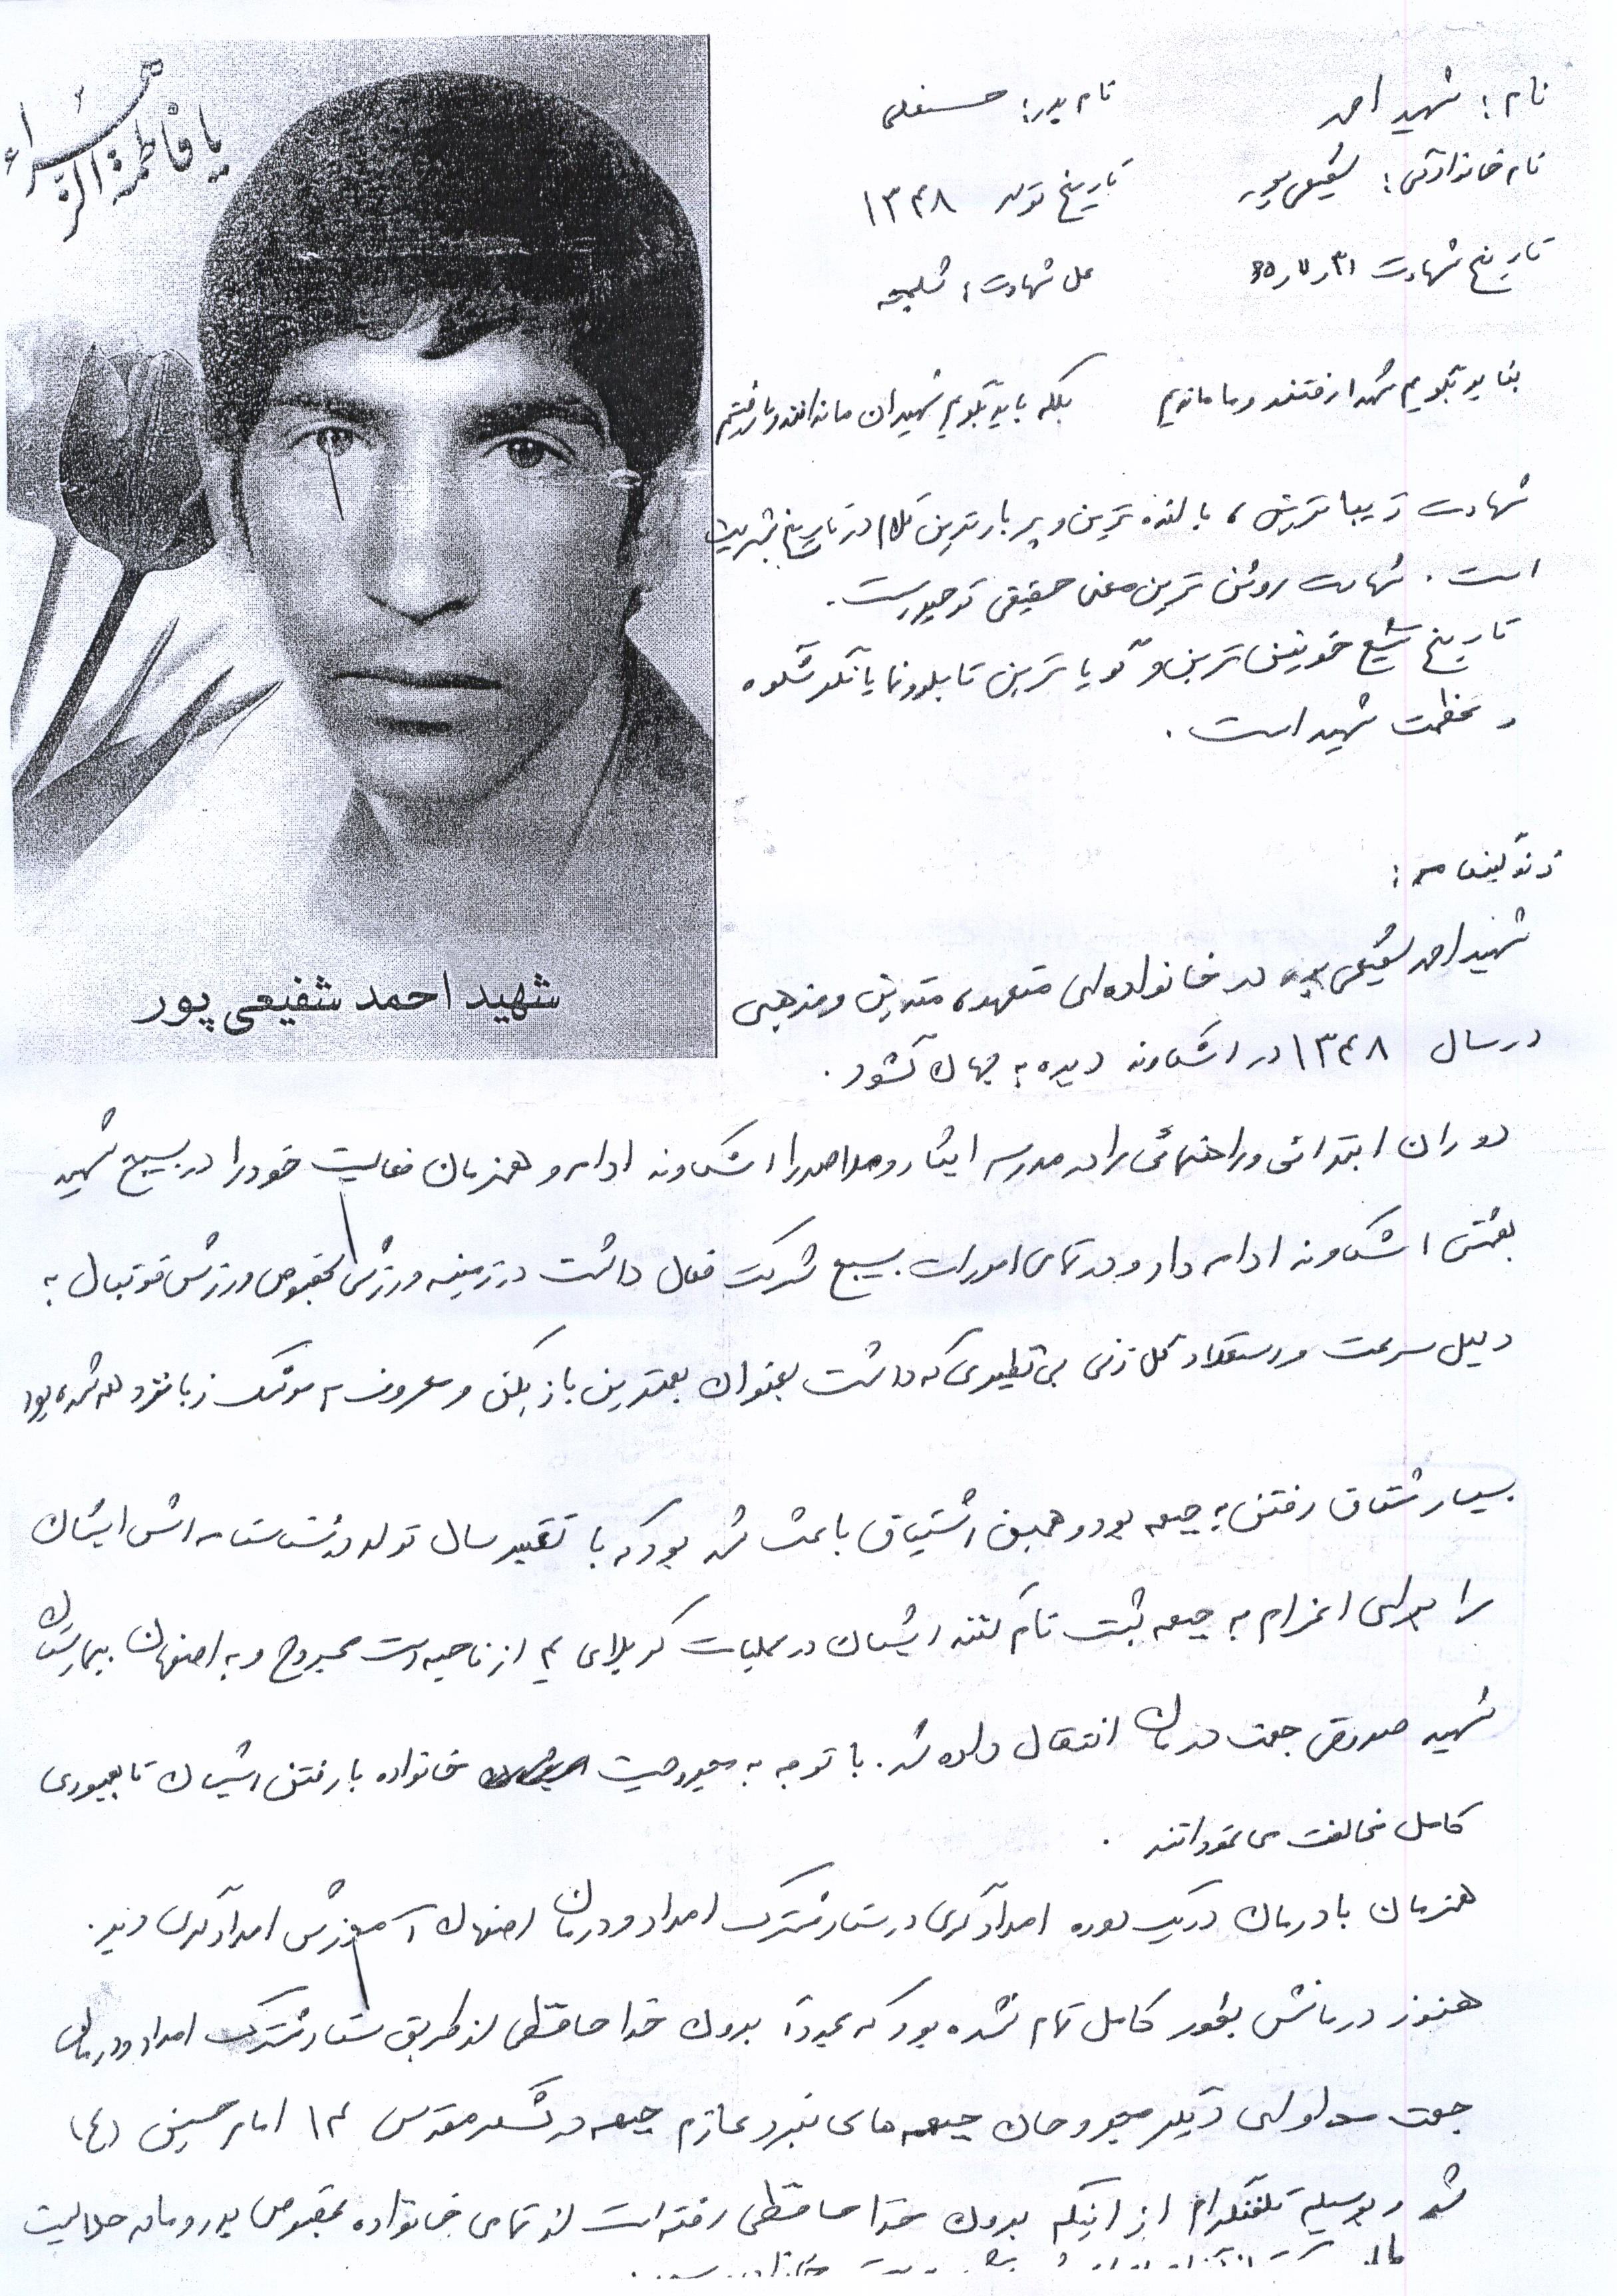 یا فاطمة الزهراء
نام : شهید احمد نام پدر: حسنعلی
نام خانوادگی : شفیعی پور تاریخ تولد ۱۳۴۸
تاریخ شهادت ۳۱ر۷ر۶۵ محل شهادت : شلمچه
نباید بگویم شهدا رفتند و ما ماندیم بلکه باید بگویم شهیدان ماندند و ما رفتیم
شهادت زیباترین ، بالنده ترین و پربارترین کلام در تاریخ بشریت
است . شهادت روشن ترین معنی حقیقی توحید است .
تاریخ تشیع خونین ترین و گویا ترین تابلو و نمایانگر شکوه
و عظمت شهید است .
زندگینامه :
شهید احمد شفیعی پور در خانواده ای متعهد ، متدین و مذهبی
در سال ۱۳۴۸ در اشکاوند دیده به جهان گشود .
شهید احمد شفیعی پور
دوران ابتدائی و راهنمائی را در مدرسه ایثار و ملاصدرا اشکاوند ادامه و همزمان فعالیت خود را در بسیج شهید
بهشتی اشکاوند ادامه داد و در تمامی امورات بسیج شرکت فعال داشت در زمینه ورزشی بخصوص ورزش فوتبال به
دلیل سرعت و استعداد گل زنی بی نظیری که داشت بعنوان بهترین بازیکن و معروف به موشک زبانزد همه شده بود
بسیار مشتاق رفتن به جبهه بود و همین اشتیاق باعث شد بود که با تغییر سال تولد در شناسنامه اش ایشان
را برای اعزام به جبهه ثبت نام کنند ایشان در عملیات کربلای ۴ از ناحیه دست مجروح و به اصفهان بیمارستان
شهید صدوقی جهت درمان انتقال داده شد . با توجه به مجروحیت خانواده با رفتن ایشان تا بهبودی
کامل مخالفت می نمودند .
همزمان با درمان در یک دوره امدادگری در ستاد مشترک امداد و درمان اصفهان آموزش امدادگری دید .
هنوز درمانش بطور کامل تمام نشده بود که مجدداً بدون خدا حافظی از طریق ستاد مشترک امداد و درمان
جهت مداوای دیگر مجروحان جبهه های نبرد عازم جبهه در لشکر مقدس ۱۴ امام حسین (ع)
شد و بوسیله تلفنگرام از اینکه بدون خدا حافظی رفته است از تمامی خانواده بخصوص پدر و مادر حلالیت